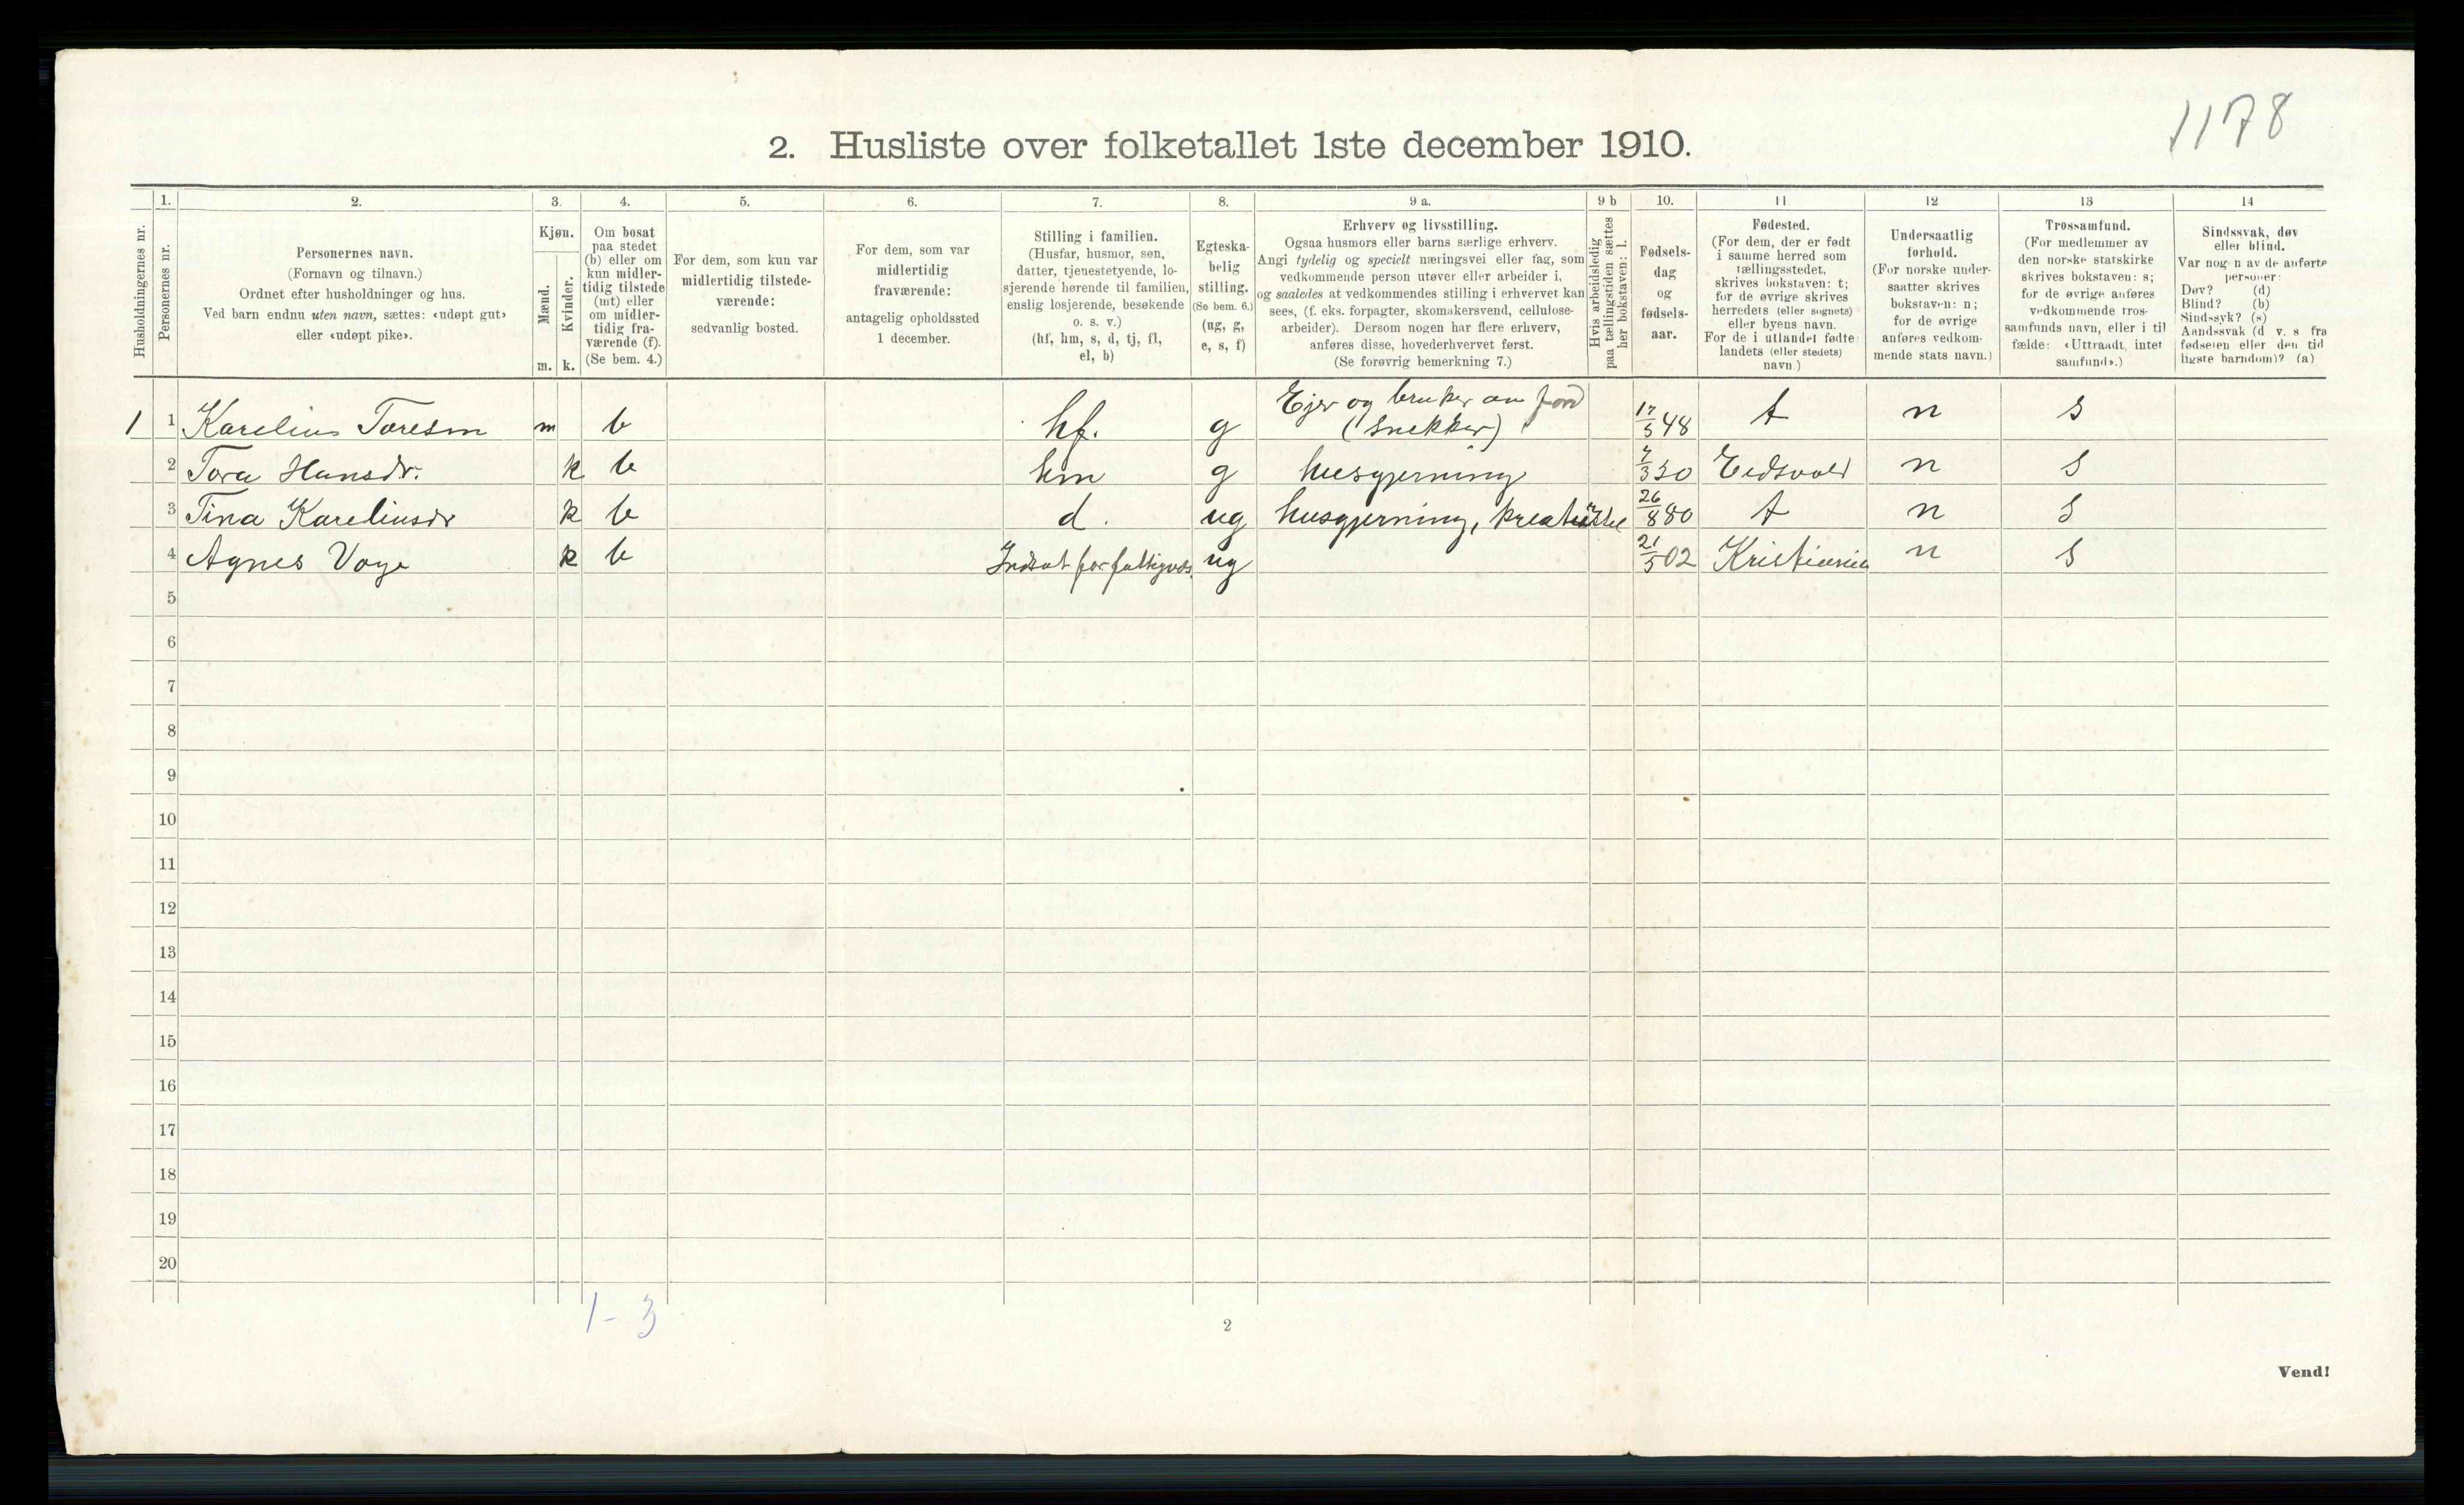 1178
2. Husliste over folketallet 1ste december 1910.
Husholdningernes nr.
1.
Personernes nr.
2.
Personernes navn.
(Fornavn og tilnavn.)
Ordnet efter husholdninger og hus.
Ved barn endnu uten navn, sættes: «udøpt gut»
eller «udøpt pike».
3.
Kjøn.
Mænd.
Kvinder.
m. k.
4.
Om bosat
paa stedet
(b) eller om
kun midler-
tidig tilstede
(mt) eller
om midler-
tidig fra-
værende (f).
(Se bem. 4.)
5.
For dem, som kun var
midlertidig tilstede-
værende:
sedvanlig bosted.
6.
For dem, som var
midlertidig
fraværende:
antagelig opholdssted
1 december.
7.
Stilling i familien.
(Husfar, husmor, søn,
datter, tjenestetyende, lo-
sjerende hørende til familien,
enslig losjerende, besøkende
o. s. v.)
(hf, hm, s, d, tj, fl,
el, b)
8.
Egteska-
belig
stilling.
(Se bem. 6.)
(ug, g,
e, s, f)
9 a.
Erhverv og livsstilling.
Ogsaa husmors eller barns særlige erhverv.
Angi tydelig og specielt næringsvei eller fag, som
vedkommende person utøver eller arbeider i,
og saaledes at vedkommendes stilling i erhvervet kan
sees, (f. eks. forpagter, skomakersvend, cellulose-
arbeider). Dersom nogen har flere erhverv,
anføres disse, hovederhvervet først.
(Se forøvrig bemerkning 7.)
9 b
Hvis arbeidsledig
paa tællingstiden sættes
her bokstaven: l.
10.
Fødsels-
dag
og
fødsels-
aar.
11
Fødested.
(For dem, der er født
i samme herred som
tællingsstedet,
skrives bokstaven: t;
for de øvrige skrives
herredets (eller sognets)
eller byens navn.
For de i utlandet fødte:
landets (eller stedets)
navn.)
12
Undersaatlig
forhold.
(For norske under-
saatter skrives
bokstaven: n;
for de øvrige
anføres vedkom-
mende stats navn.)
13
Trossamfund.
(For medlemmer av
den norske statskirke
skrives bokstaven: s;
for de øvrige anføres
vedkommende tros-
samfunds navn, eller i til
fælde: «Uttraadt, intet
samfund».)
14
Sindssvak, døv
eller blind.
Var nogen av de anførte
personer:
Døv? (d)
Blind? (b)
Sindssyk? (s)
Aandssvak (d v. s fra
fødselen eller den tid
ligste barndom)? (a)
1 1 Karelius Toresen m b hf. g Ejer og bruker av jord (Snekker) 17/5 48 t n s
2 Tora Hansdr. k b hm g husgjerning 7/3 50 Eidsvold n s
3 Tina Kareliusdr k b d. ug husgjerning, kreaturstel 26/8 80 t n s
4 Agnes k b ug 21/5 02 Kristiania n s
5
6
7
8
9
10
11
12
13
14
15
16
17
18
19
20
1 - 3
2
Vend!